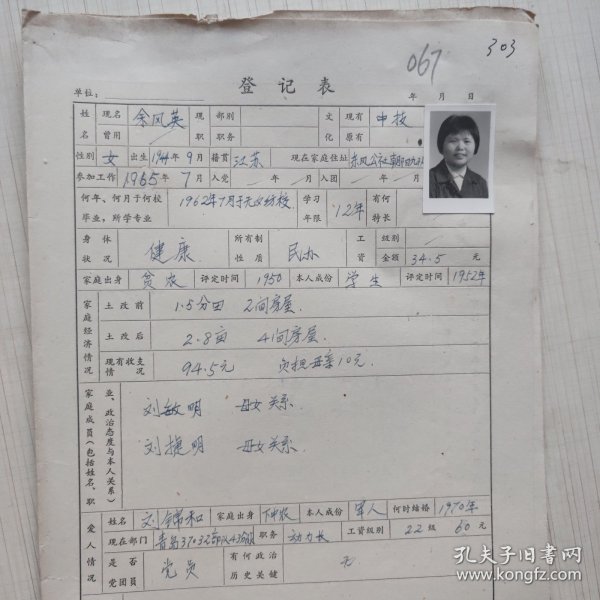 067
303
登记表
单位： 年 月 日
姓名 现名 余凤英 现职 部别 文化 现有 中技
曾用 职务 原有
性别 女 出生 1944年9月 籍贯 江苏 现在家庭住址 东风公社
参加工作 1965年7月 入党 年 月 入团 年 月
何年、何月于何校毕业，所学专业 1962年7月于 纺校 学习年限 12年 有何特长
身体状况 健康 所有制性质 民办 工资 级别
金额 34.5元
家庭出身 贫农 评定时间 1950 本人成份 学生 评定时间 1952年
家庭经济情况 土改前 1.5分田 2间房屋.
土改后 2.8亩 4间房屋.
现有收支情况 94.5元 负担母亲10元.
家庭成员（包括姓名、职业、政治态度与本人关系）
刘敏明 母女关系.
刘捷明 母女关系.
爱人情况 姓名 刘锦和 家庭出身 下中农 本人成份 军人 何时结婚 1970年
现在部门 青岛37032部队 职务 动力长 工资级别 22级 60元
是否党团员 党员 有何政治历史关键 无
孔夫子旧书网
www.kongfz.com